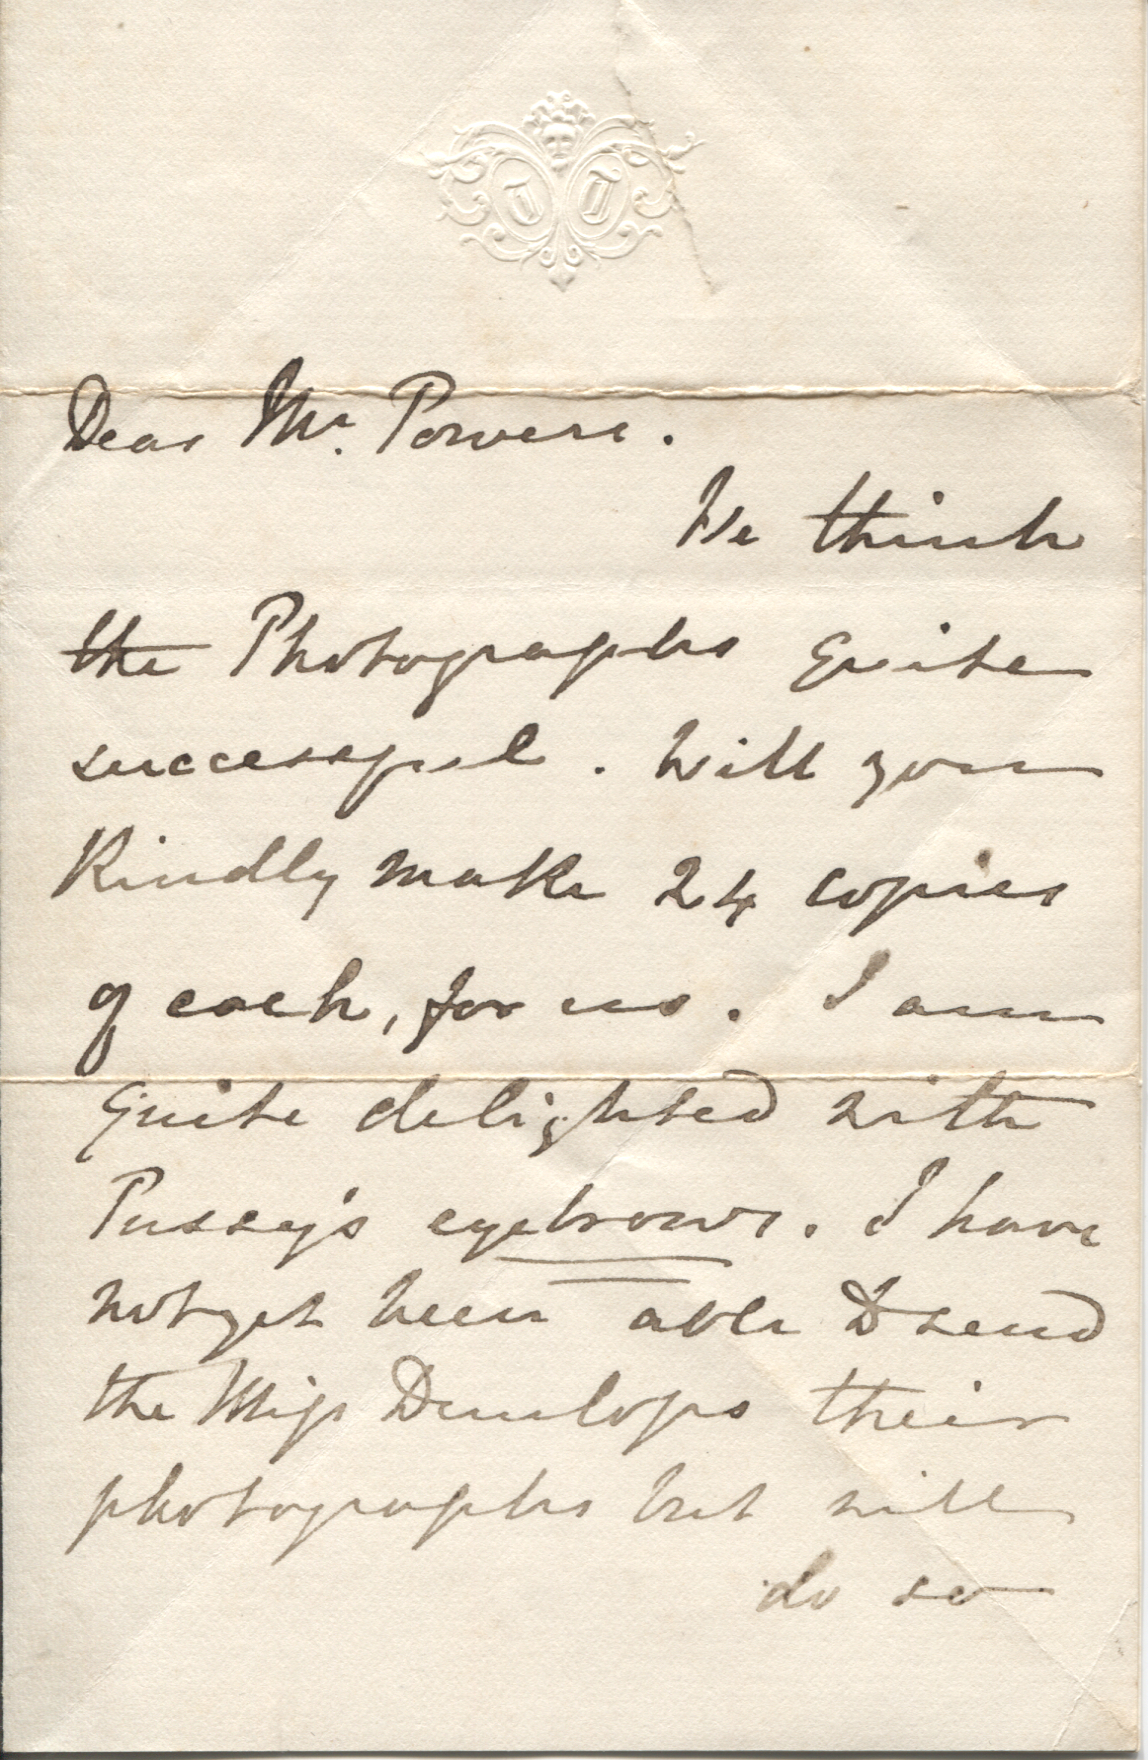 Dear Mr. Powers.
We think
the Photographs quite
successful. Will you
Kindly make 24 copies
of each, for us. I am
quite delighted with
Pussy's eyebrows. I have
not yet been able to send
the Miss Dunlops their
photographs but will
do so